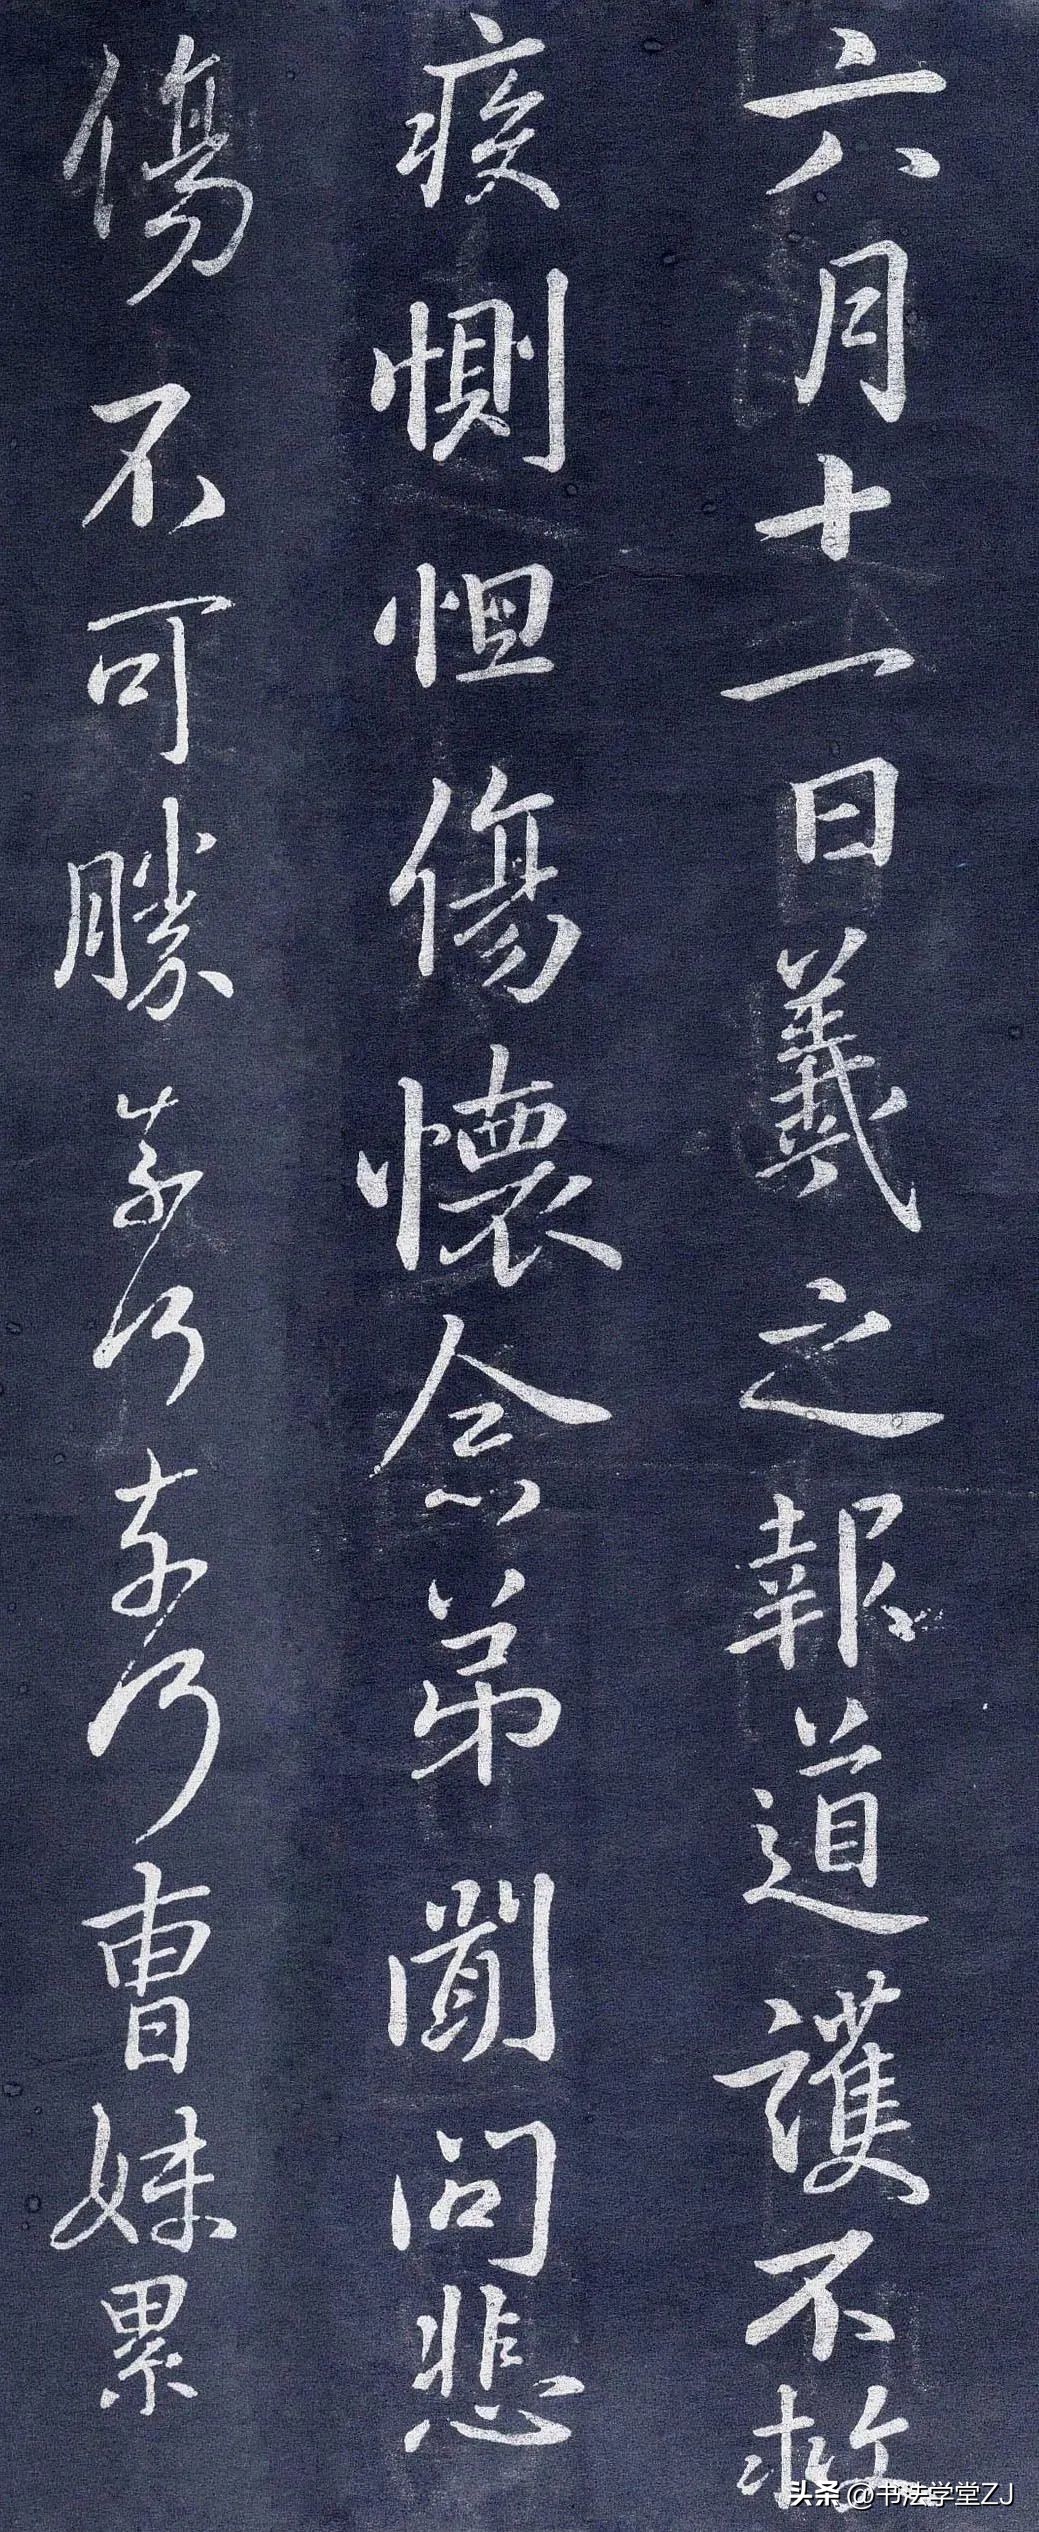 六月十一日羲之報道護不救
疾惻怛傷懷念弟聞問悲
傷不可勝奈何奈何曹妹累
头条 @书法学堂ZJ